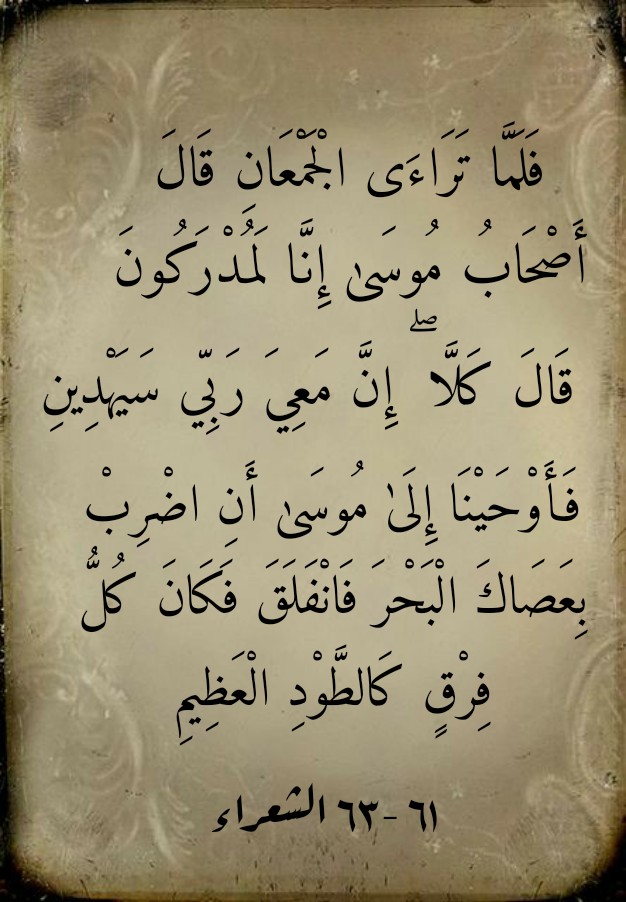 فَلَمَّا تَرَاءَى الْجَمْعَانِ قَالَ
أَصْحَابُ مُوسَىٰ إِنَّا لَمُدْرَكُونَ
قَالَ كَلَّا ۖ إِنَّ مَعِيَ رَبِّي سَيَهْدِينِ
فَأَوْحَيْنَا إِلَىٰ مُوسَىٰ أَنِ اضْرِبْ
بِعَصَاكَ الْبَحْرَ فَانْفَلَقَ فَكَانَ كُلُّ
فِرْقٍ كَالطَّوْدِ الْعَظِيمِ
٦١ -٦٣ الشعراء